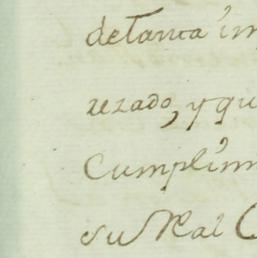 de tanta im
uzado, y qu
Cumplim
su Real C